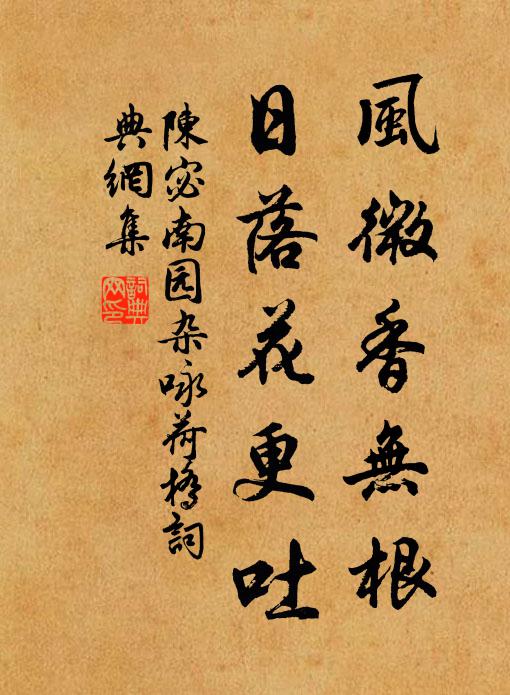 風微香無根
日落花更吐
陳宓南园杂咏荷橋詞
典網集
詞典
网印